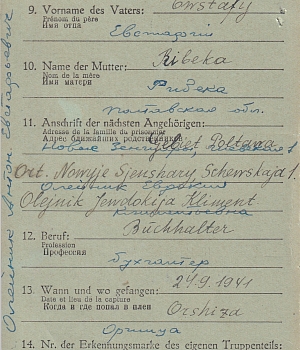 9. Vorname des Vaters: Ewstafy
Prénom du père
Имя отца
Евстафий
10. Name der Mutter: Ribeka
Nom de la mère
Имя матери
Рибека
Полтавская обл.
11. Anschrift der nächsten Angehörigen:
Adresse de la famille du prisonnier
Адрес ближайших родственников
Gebiet Poltawa
Новые
Ort. Nowyje Sjenshary Schewskaja 1.
Олейник Евдокия
Olejnik Jewdokija Kliment
Климентовна
12. Beruf: Buchhalter
Profession
Профессия
бухгалтер
13. Wann und wo gefangen: 24.9.1941
Date et lieu de la capture
Когда и где попал в плен
Orshiza
Оржица
14. Nr. der Erkennungsmarke des eigenen Truppenteils:
Олейник Антон Евстафьевич